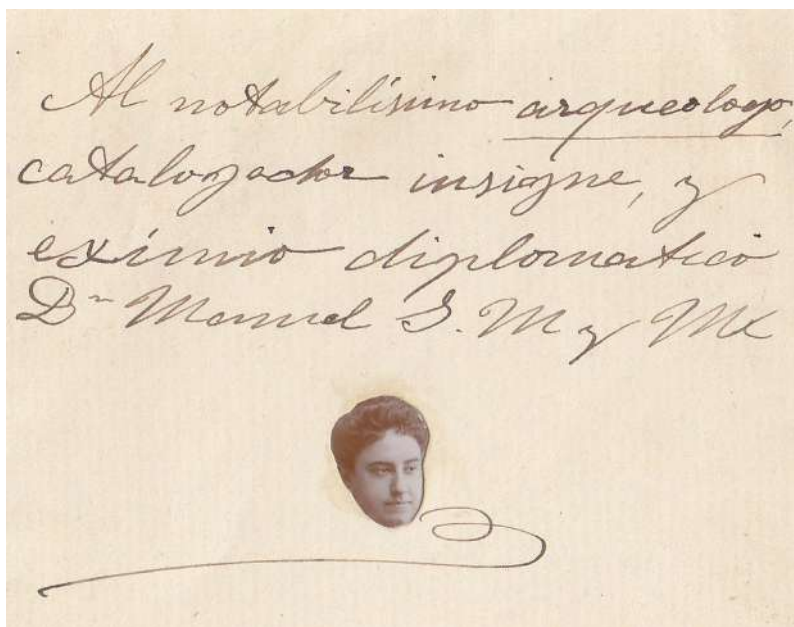 Al notabilísimo arqueologo,
catalogador insigne, y
exímio diplomatico
Dn Manuel G. M y Mz